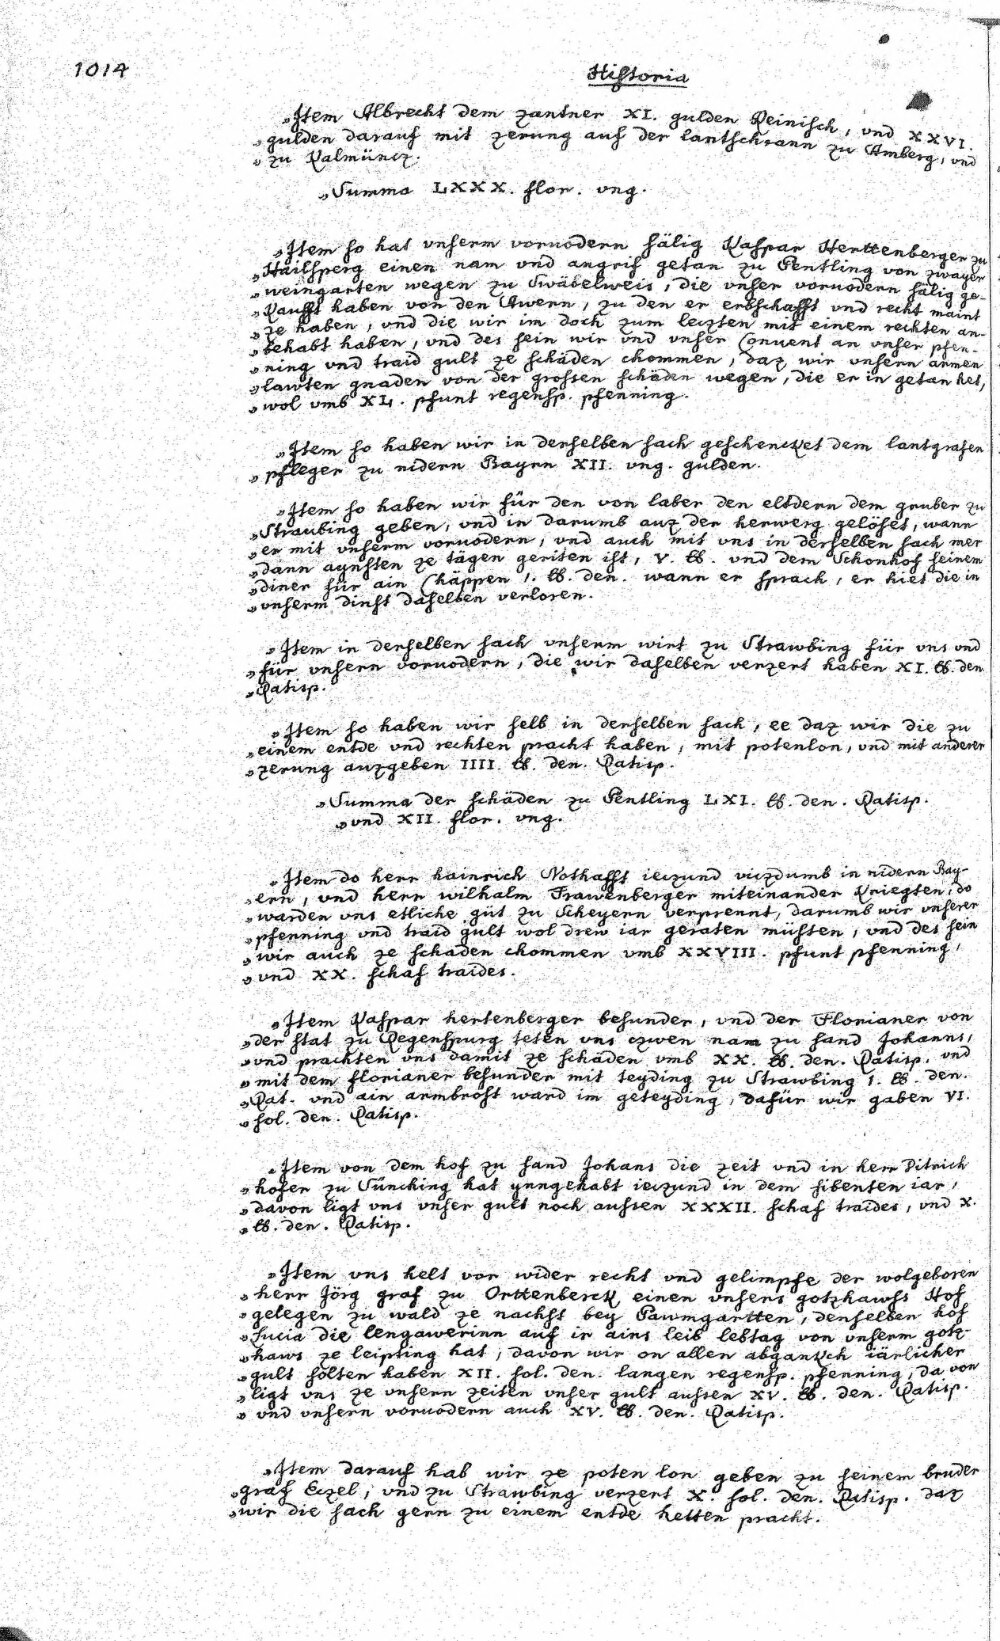 1014
Historia
„Item Albrecht dem zantner XI. gulden Reinisch, vnd XXVI.
„gulden darauf mit zerung auf der lantschrann zu Amberg, vnd
„zu Kalmüncz.
„Summa LXXX. flor. vng.
„Item so hat vnserm voruodern sälig Kaspar Herttenberger zu
„Hailsperg einen nam vnd angrif getan zu Pentling von zwayer
„weingarten wegen zu Swäbelweis, die vnser voruodern sälig ge-
„kaufft haben von den Awern, zu den er erbschafft vnd recht maint
„ze haben, vnd die wir im doch zum leczten mit einem rechten an-
„behabt haben, vnd des sein wir vnd vnser Conuent an vnser pfen-
„ning vnd traid gult ze schäden chommen, daz wir vnsern armen
„lawten gnaden von der grossen schäden wegen, die er in getan het,
„wol vmb XL. pfunt regensp. pfenning.
„Item so haben wir in derselben sach geschencket dem lantgrafen
„pfleger zu nidern Bayrn XII. vng. gulden.
„Item so haben wir für den von laber den eltdern dem gruber zu
„Straubing geben, vnd in darumb auz der herwerg gelöset, wann
„er mit vnserm voruodern, vnd auch mit vns in derselben sach mer
„dann aynsten ze tägen geriten ist, V. ℔. vnd dem Schonhof seinem
„diner für ain Chäppen 1. ℔. den. wann er sprach, er hiet die in
„vnserm dinst daselben verloren.
„Item in derselben sach vnserm wirt zu Strawbing für vns vnd
„für vnsern voruodern, die wir daselben verzert haben XI. ℔. den
„Ratisp.
„Item so haben wir selb in derselben sach, ee daz wir die zu
„einem entde vnd rechten pracht haben, mit potenlon, vnd mit anderer
„zerung auzgeben IIII. ℔. den. Ratisp.
„Summa der schäden zu Pentling LXI. ℔. den. Ratisp.
„vnd XII. flor. vng.
„Item do herr hainrich Nothafft ieczund viczdumb in nidern Bay-
„ern, vnd herr wilhalm Frawenberger miteinander kriegten, do
„warden vns etliche güt zu Scheyern verprennt, darumb wir vnserer
„pfenning vnd traid gult wol drew iar geraten müsten, vnd des sein
„wir auch ze schaden chommen vmb XXVIII. pfunt pfenning,
„vnd XX. schaf traides.
„Item Kaspar hertenberger besunder, vnd der Florianer von
„der stat zu Regenspurg teten vns czwen nam zu sand Johanns,
„vnd prachten vns damit ze schäden vmb XX. ℔. den. Ratisp. vnd
„mit dem florianer besunder mit teyding zu Strawbing 1. ℔. den.
„Rat. vnd ain armbrost ward im geteyding, dafür wir gaben VI.
„sol. den. Ratisp.
„Item von dem hof zu sand Johans die zeit vnd in herr Ditrich
„hofer zu Sünching hat ynngehabt ieczund in dem sibenten iar,
„davon ligt vns vnser gult noch aussen XXXII. schaf traides, vnd X.
„℔. den. Ratisp.
„Item vns helt vor wider recht vnd gelimpfe der wolgeboren
„herr Jörg graf zu Orttenberck einen vnsers gotzhawss Hof
„gelegen zu wald ze nachst bey Pawmgartten, denselben hof
„Lucia die lengawerinn auf ir ains leib lebtag von vnserm gotz-
„haws ze leipting hat, davon wir on allen abgankch iärlicher
„gult solten haben XII. sol. den. langen regensp. pfenning, da von
„ligt vns ze vnsern zeiten vnser gult aussen XV. ℔. den. Ratisp.
„vnd vnsern voruodern auch XV. ℔. den. Ratisp.
„Item darauf hab wir ze poten lon geben zu seinem bruder
„graf Eczel, vnd zu Strawbing verzert X. sol. den. Ratisp. daz
„wir die sach gern zu einem entde hetten pracht.